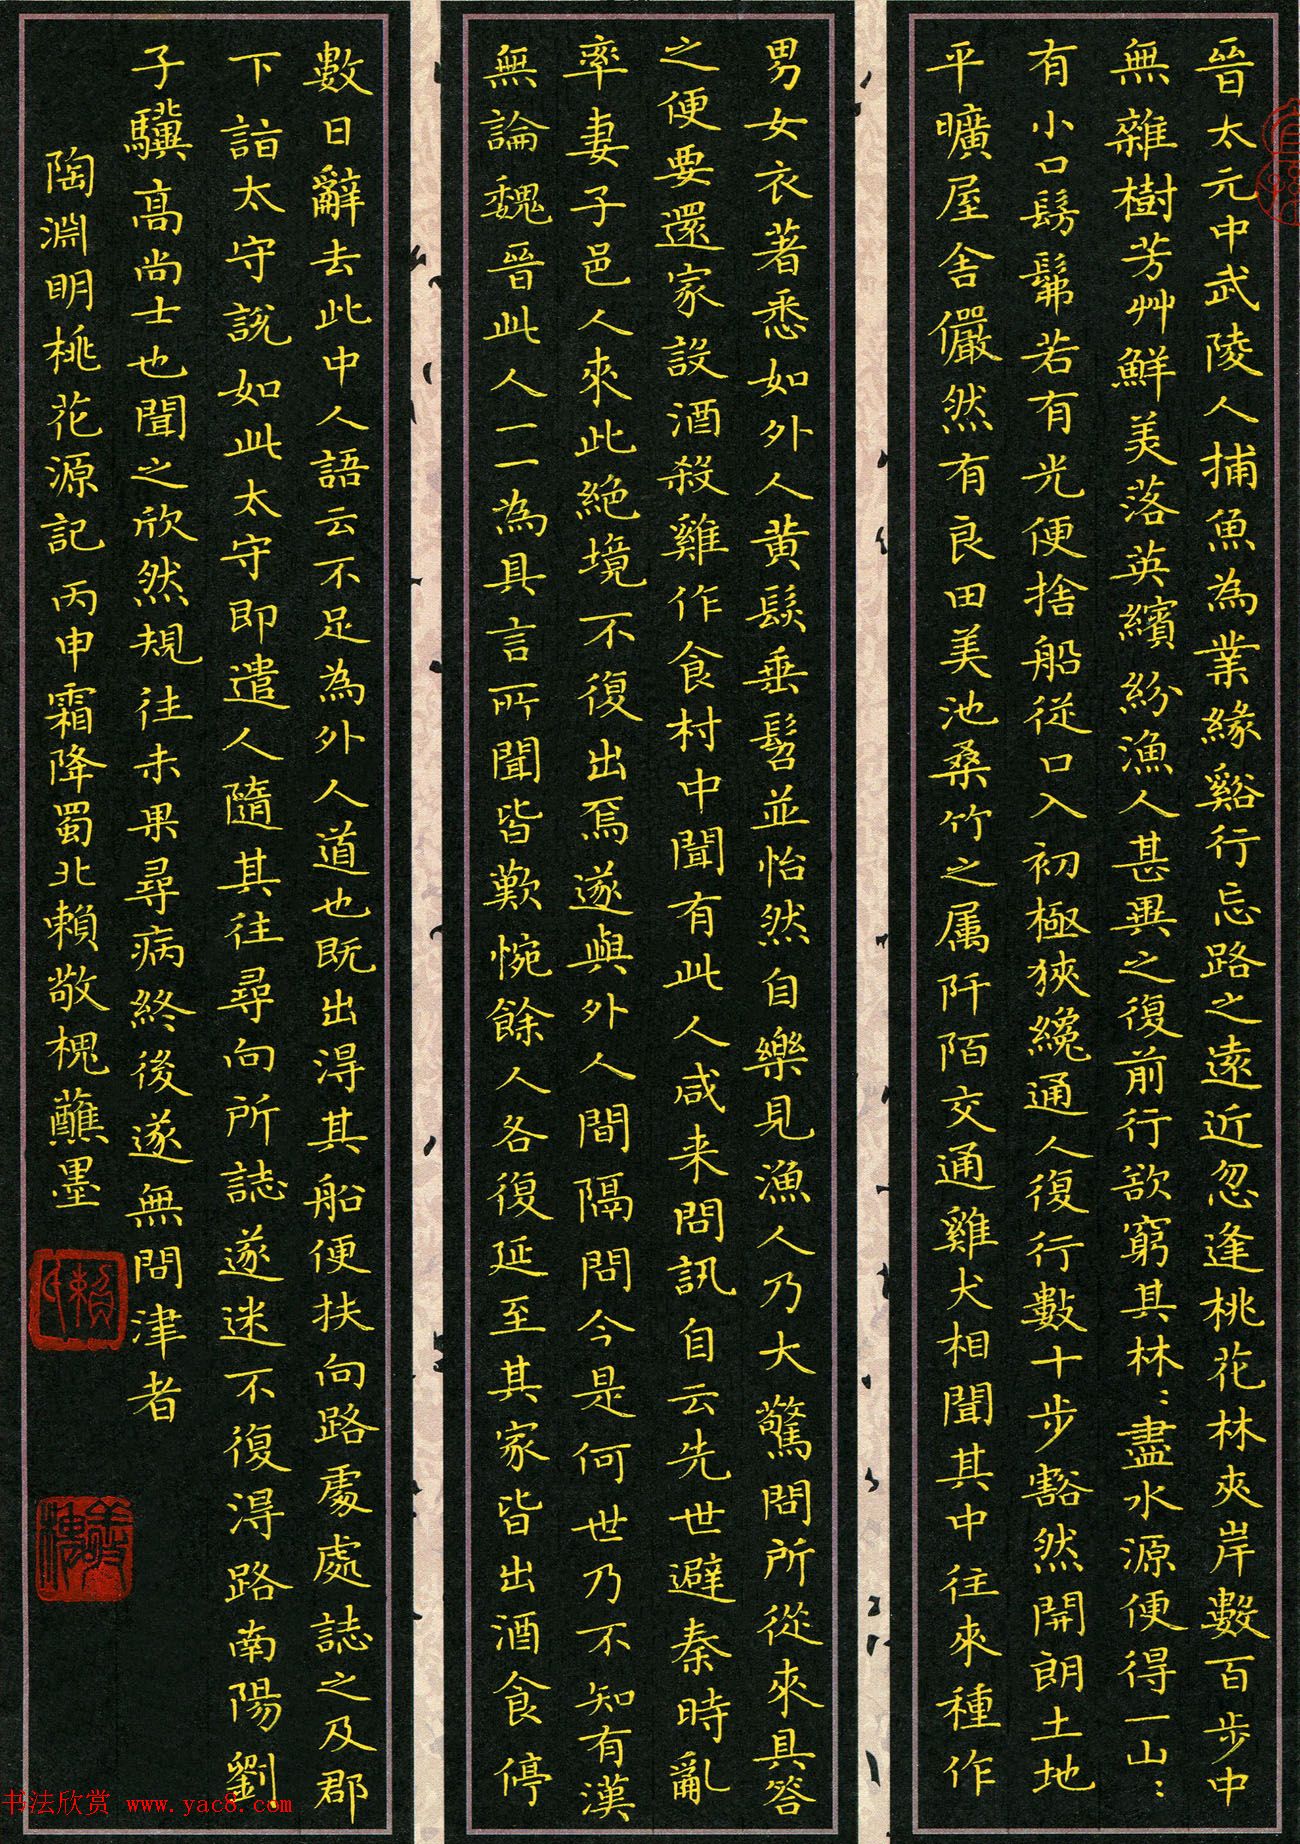 晉太元中武陵人捕魚為業緣谿行忘路之遠近忽逢桃花林夾岸數百步中
無雜樹芳艸鮮美落英繽紛漁人甚異之復前行欲窮其林〻盡水源便得一山〻
有小口髣髴若有光便捨船從口入初極狹纔通人復行數十步豁然開朗土地
平曠屋舍儼然有良田美池桑竹之属阡陌交通雞犬相聞其中往來種作
男女衣著悉如外人黄髮垂髫並怡然自樂見漁人乃大驚問所從來具答
之便要還家設酒殺雞作食村中聞有此人咸来問訊自云先世避秦時亂
率妻子邑人來此絕境不復出焉遂與外人間隔問今是何世乃不知有漢
無論魏晉此人一一為具言所聞皆歎惋餘人各復延至其家皆出酒食停
數日辭去此中人語云不足為外人道也既出淂其船便扶向路處處誌之及郡
下詣太守說如此太守即遣人隨其往尋向所誌遂迷不復淂路南陽劉
子驥高尚士也聞之欣然規往未果尋病終後遂無問津者
陶淵明桃花源記 丙申霜降蜀北賴敬槐蘸墨
书法欣赏 www.yac8.com